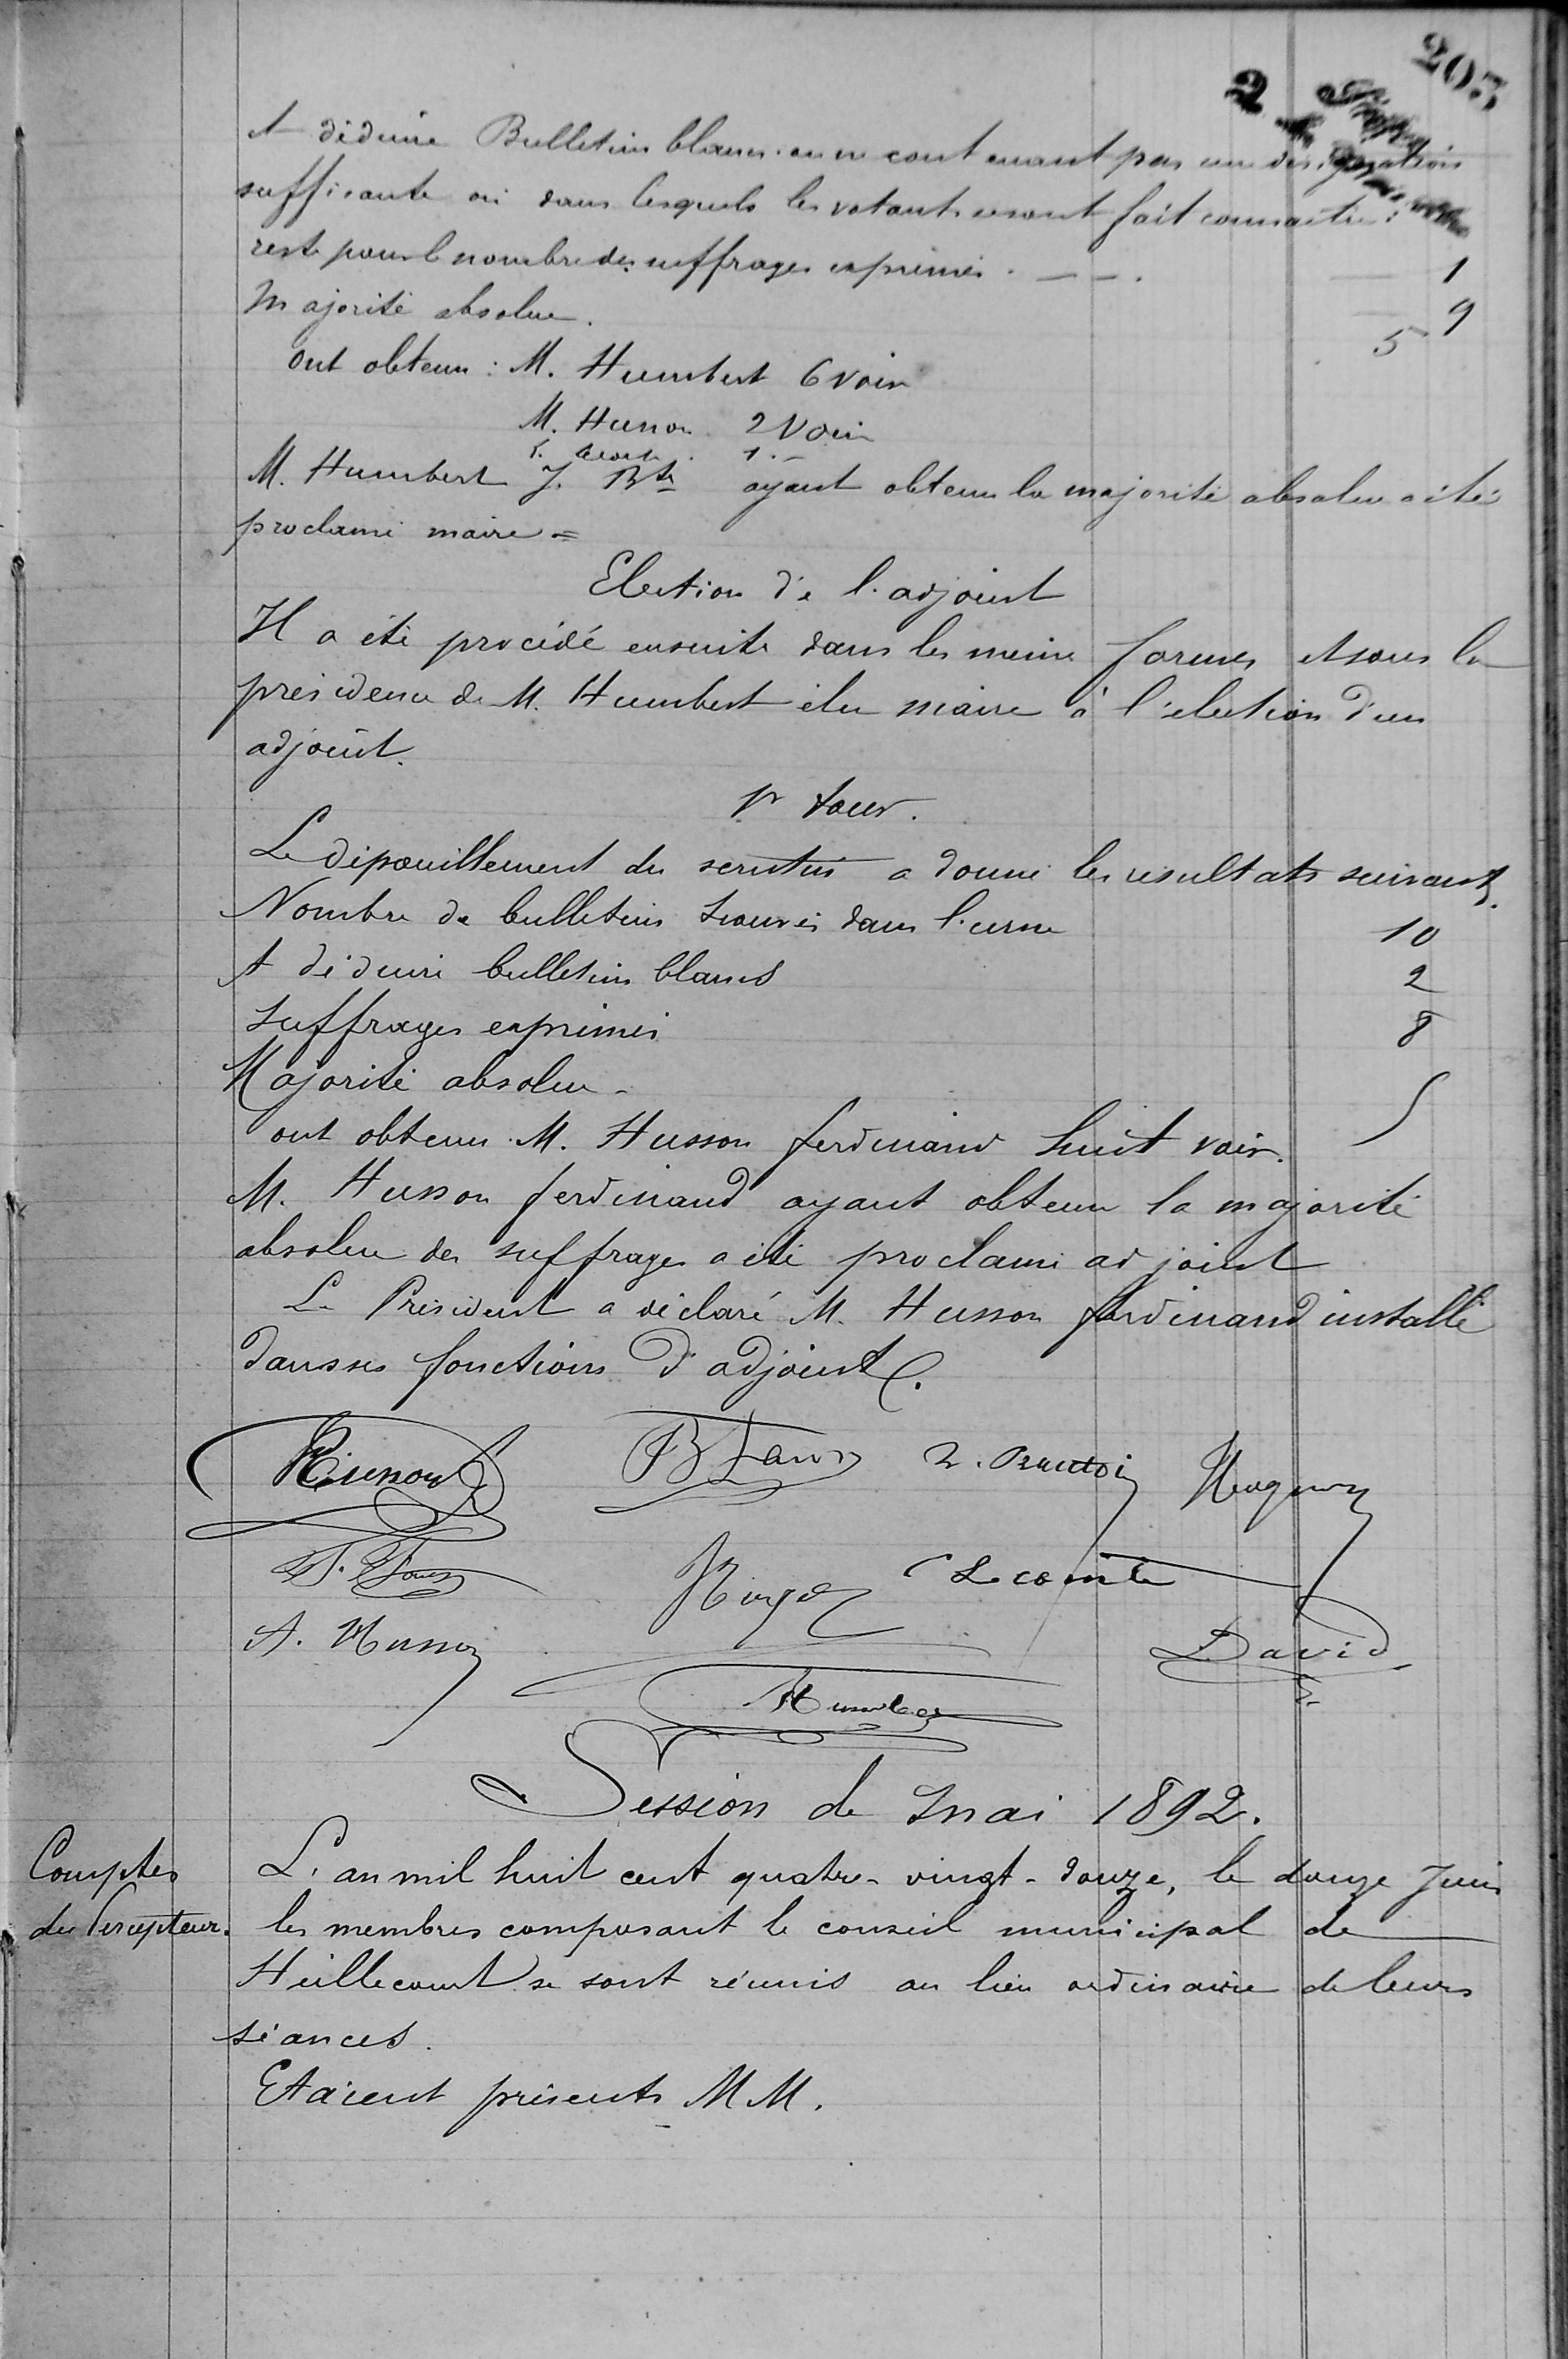 205
2
A déduire Bulletins blancs ou ne contenant pas une désignation
suffisante ou dans lesquels les votants se sont fait connaitre :
reste pour le nombre des suffrages exprimés . — — . 1
Majorité absolue. 9
5
ont obtenu : M. Humbert 6 voix
M. Husson 2 voix
1. —
M. Humbert J. Bte ayant obtenu la majorité absolue a été
proclamé maire =
Election de l'adjoint
Il a été procédé ensuite dans les même formes et sous la
présidence de M. Humbert élu maire à l'élection d'un
adjoint.
1r tour.
Le dépouillement du scrutin a donné les résultats suivants.
Nombre de bulletins trouvés dans l'urne 10
A déduire bulletins blancs 2
Suffrages exprimés 8
Majorité absolue - 5
ont obtenu M. Husson ferdinand huit voix.
M. Husson ferdinand ayant obtenu la majorité
absolue des suffrages a été proclamé adjoint
Le Président a déclaré M. Husson ferdinand installé
dans ses fonctions d'adjoint.
Husson
Lecomte
A. Husson
David
Humbert
Session de Mai 1892.
Comptes
du Percepteur.
L'an mil huit cent quatre-vingt-douze, le douze Juin
les membres composant le conseil municipal de
Heillecourt se sont réunis au lieu ordinaire de leurs
séances.
Etaient présents MM.